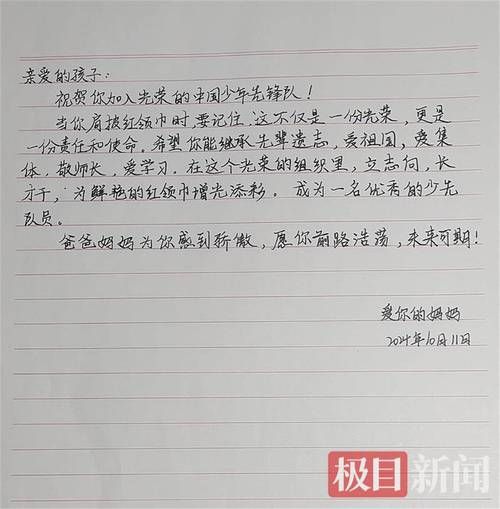 亲爱的孩子：
祝贺你加入光荣的中国少年先锋队！
当你肩披红领巾时，要记住，这不仅是一份光荣，更是
一份责任和使命。希望你能继承先辈遗志，爱祖国，爱集
体，敬师长，爱学习。在这个光荣的组织里，立志向，长
才干，为鲜艳的红领巾增光添彩。成为一名优秀的少先
队员。
爸爸妈妈为你感到骄傲，愿你前路浩荡，未来可期！
爱你的妈妈
2024年10月11日
极目新闻